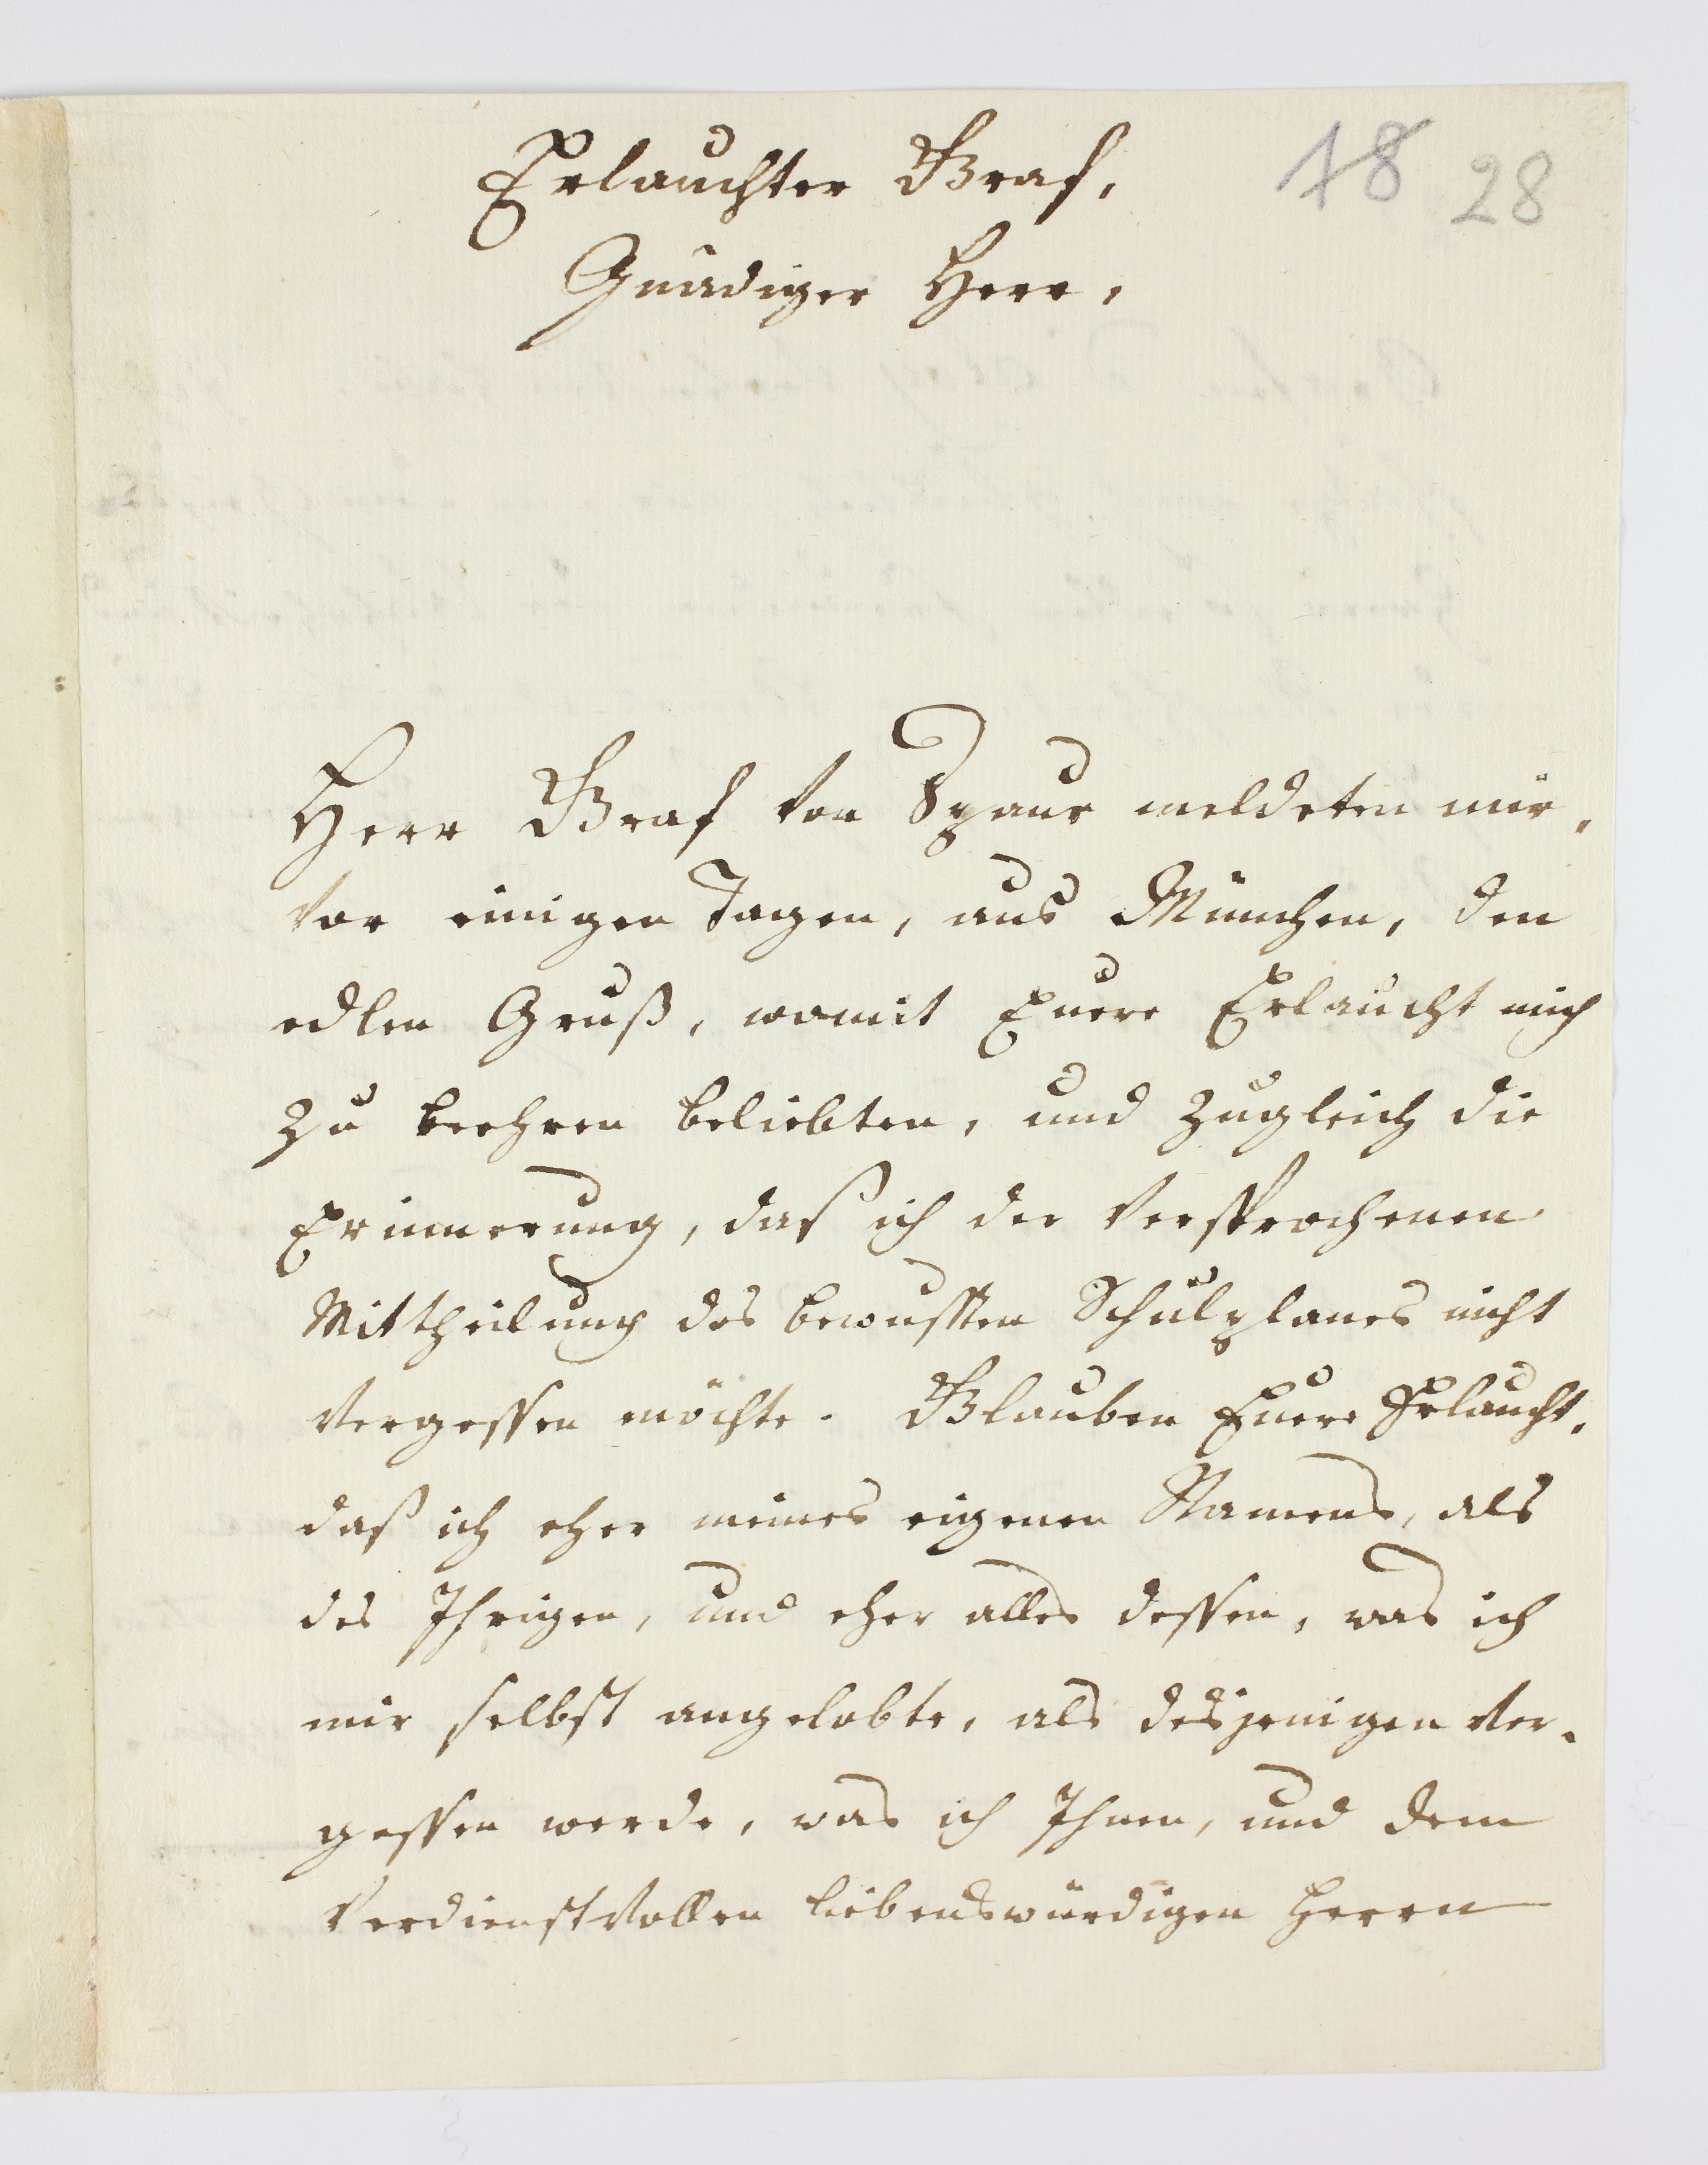 18 28
Erlauchter Graf,
Gnädiger Herr,
Herr Graf von Spaur meldeten mir,
vor einigen Tagen, aus München, den
edlen Gruß, womit Euere Erlaucht mich
zu beehren beliebten, und zugleich die
Erinnerung, daß ich der versprochenen
Mittheilung des bewußten Schulplanes nicht
vergessen möchte. Glauben Euere Erlaucht,
daß ich eher meines eigenen Namens, als
des Ihrigen, und eher alles dessen, was ich
mir selbst angelobte, als desjenigen ver-
gessen werde, was ich Ihnen, und dem
verdienstvollen liebenswürdigen Herrn